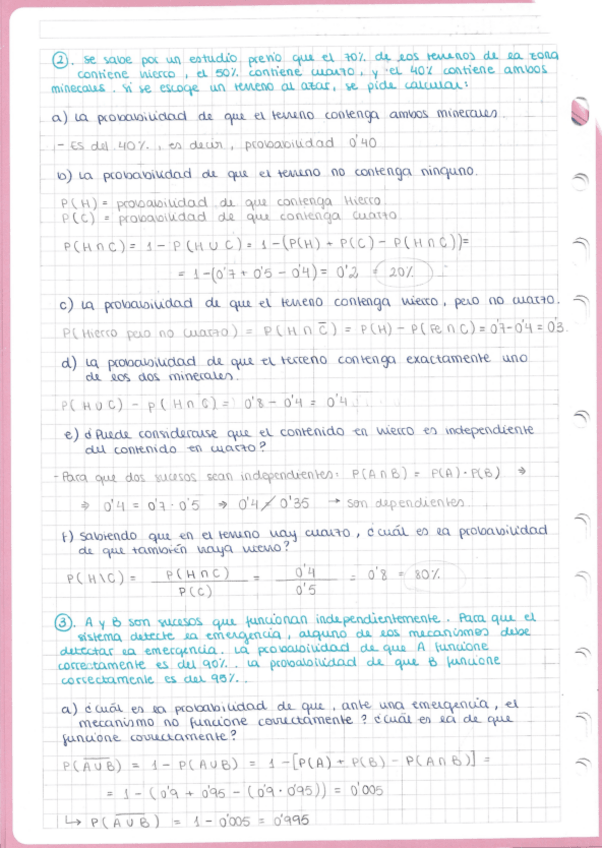 ②. Se sabe por un estudio previo que el 70% de los terrenos de la zona
contiene hierro, el 50% contiene cuarzo, y el 40% contiene ambos
minerales. Si se escoge un terreno al azar, se pide calcular:
a) La probabilidad de que el terreno contenga ambos minerales.
- Es del 40%, es decir, probabilidad 0'40
b) La probabilidad de que el terreno no contenga ninguno.
P(H) = probabilidad de que contenga Hierro
P(C) = probabilidad de que contenga cuarzo
P(H∩C) = 1 - P(H∪C) = 1 - (P(H) + P(C) - P(H∩C)) =
= 1 - (0'7 + 0'5 - 0'4) = 0'2 = 20%
c) La probabilidad de que el terreno contenga hierro, pero no cuarzo.
P(Hierro pero no cuarzo) = P(H∩C̅) = P(H) - P(Fe∩C) = 0'7 - 0'4 = 0'3.
d) La probabilidad de que el terreno contenga exactamente uno
de los dos minerales.
P(H∪C) - P(H∩C) = 0'8 - 0'4 = 0'4
e) ¿Puede considerarse que el contenido en hierro es independiente
del contenido en cuarzo?
- Para que dos sucesos sean independientes: P(A∩B) = P(A)·P(B) ⇒
⇒ 0'4 = 0'7·0'5 → 0'4 ≠ 0'35 → son dependientes
f) Sabiendo que en el terreno hay cuarzo, ¿cuál es la probabilidad
de que también haya hierro?
P(H\C) = P(H∩C) / P(C) = 0'4 / 0'5 = 0'8 = 80%
③. A y B son sucesos que funcionan independientemente. Para que el
sistema detecte la emergencia, alguno de los mecanismos debe
detectar la emergencia. La probabilidad de que A funcione
correctamente es del 90%. La probabilidad de que B funcione
correctamente es del 95%.
a) ¿Cuál es la probabilidad de que, ante una emergencia, el
mecanismo no funcione correctamente? ¿Cuál es la de que
funcione correctamente?
P(A̅∪̅B̅) = 1 - P(A∪B) = 1 - [P(A) + P(B) - P(A∩B)] =
= 1 - (0'9 + 0'95 - (0'9·0'95)) = 0'005
↳ P(A̅∪̅B̅) = 1 - 0'005 = 0'995